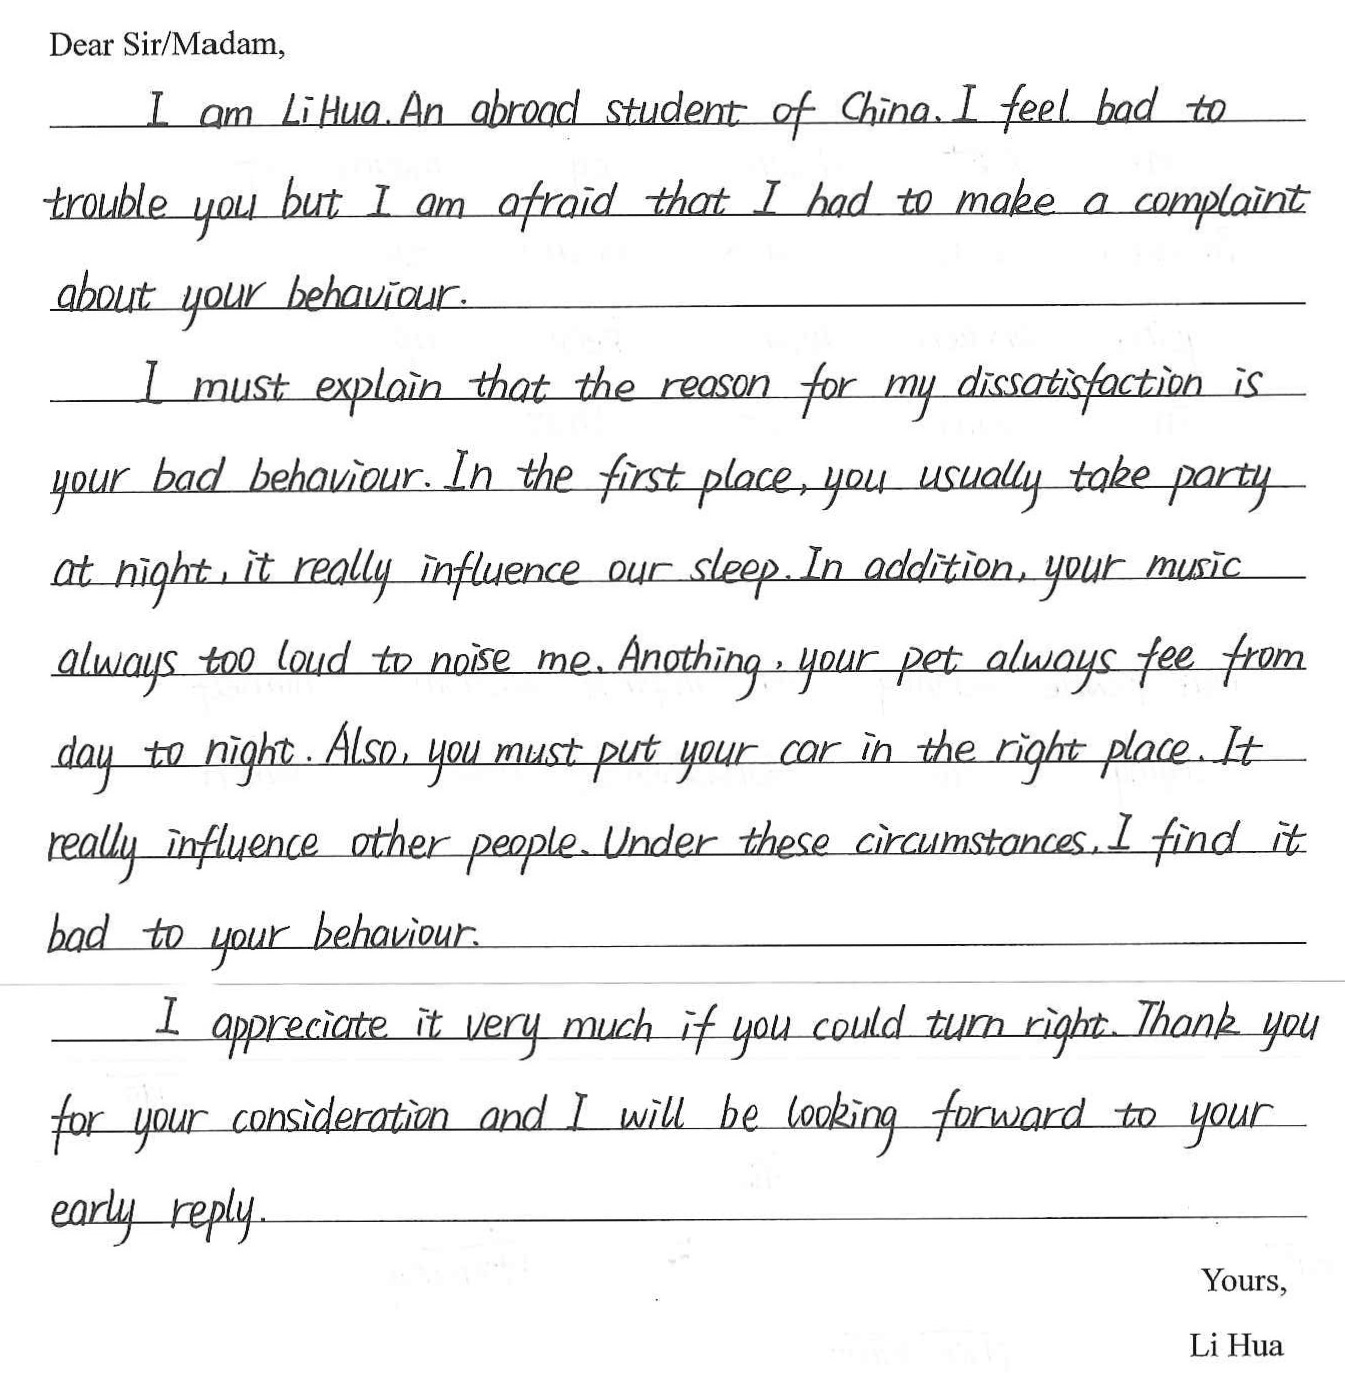 Dear Sir/Madam,
I am Li Hua. An abroad student of China. I feel bad to
trouble you but I am afraid that I had to make a complaint
about your behaviour.
I must explain that the reason for my dissatisfaction is
your bad behaviour. In the first place, you usually take party
at night, it really influence our sleep. In addition, your music
always too loud to noise me. Anothing, your pet always fee from
day to night. Also, you must put your car in the right place. It
really influence other people. Under these circumstances, I find it
bad to your behaviour.
I appreciate it very much if you could turn right. Thank you
for your consideration and I will be looking forward to your
early reply.
Yours,
Li Hua